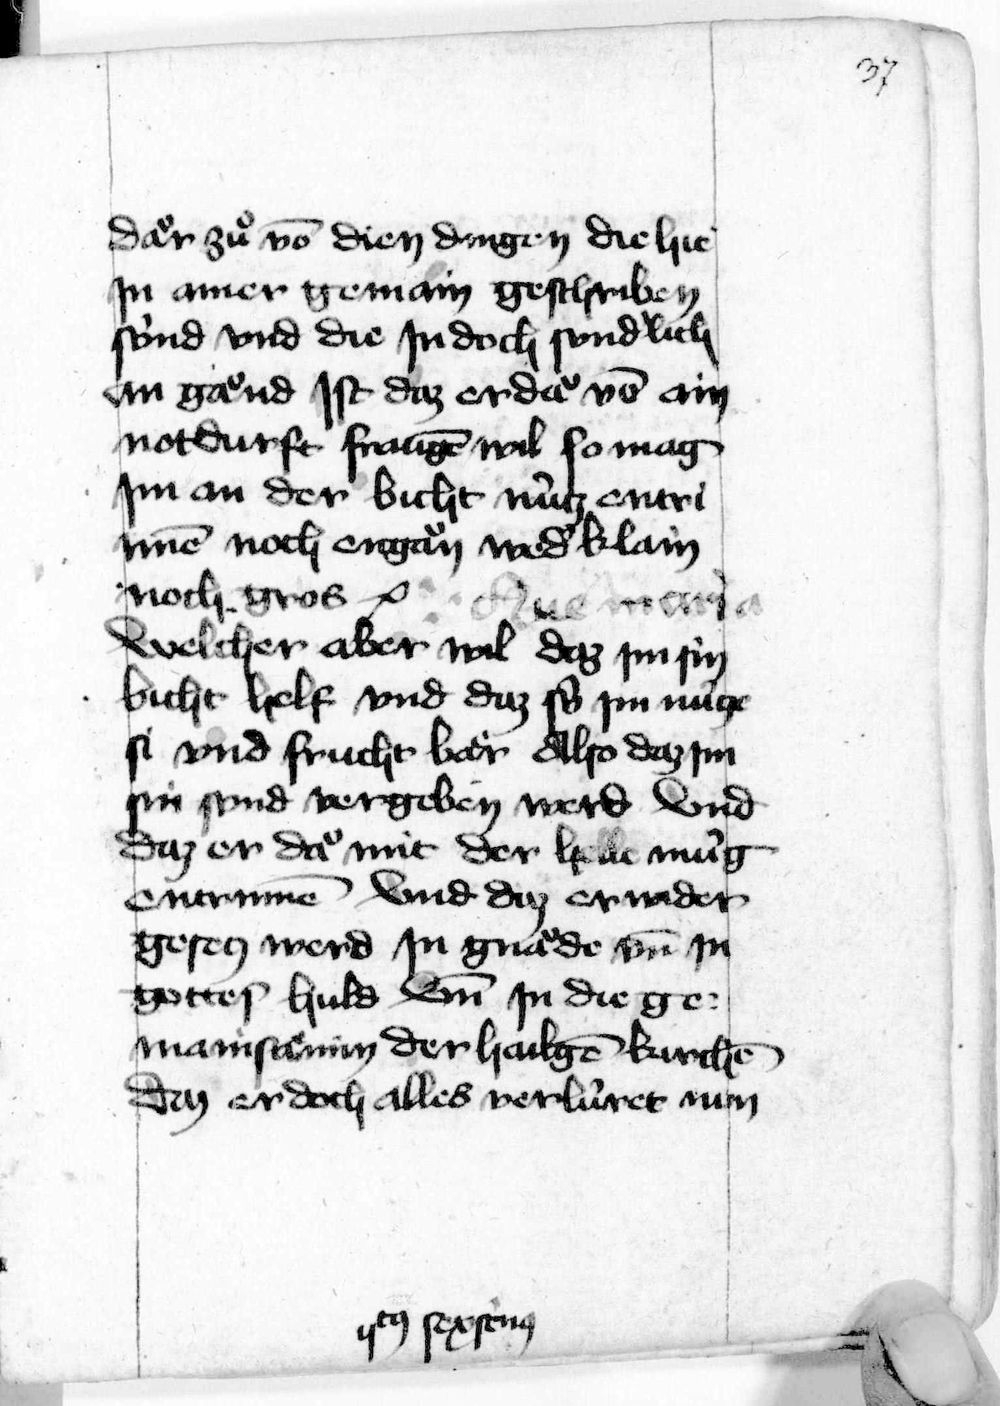 37
daͦr zuͦ vō dien dingen die hie
In ainer gemain geschriben
sind vnd die In doch sundˀlich
an gaͦnd Ist daz er daͦ vō ain
notdurft fraugē wil so mag
Im an der bicht nütz entri
nnē noch engaͦn wedˀ klain
noch gros
Aue maria
Welcher aber wil daz im sin
bicht helf vnd daz sÿ im nütze
si vnd frucht bär Also daz im
sin sünd vergeben werd Vnd
daz er daͦ mit der helle müg
entrinnē Vnd daz er wider
gesetz werd In gnaͦde vn̄ In
gottes huld Vn̄ In die ge:
mainsämin der hailgē kirchē
Daz er doch alles verlüret won
ijtꝯ sexstenꝯ